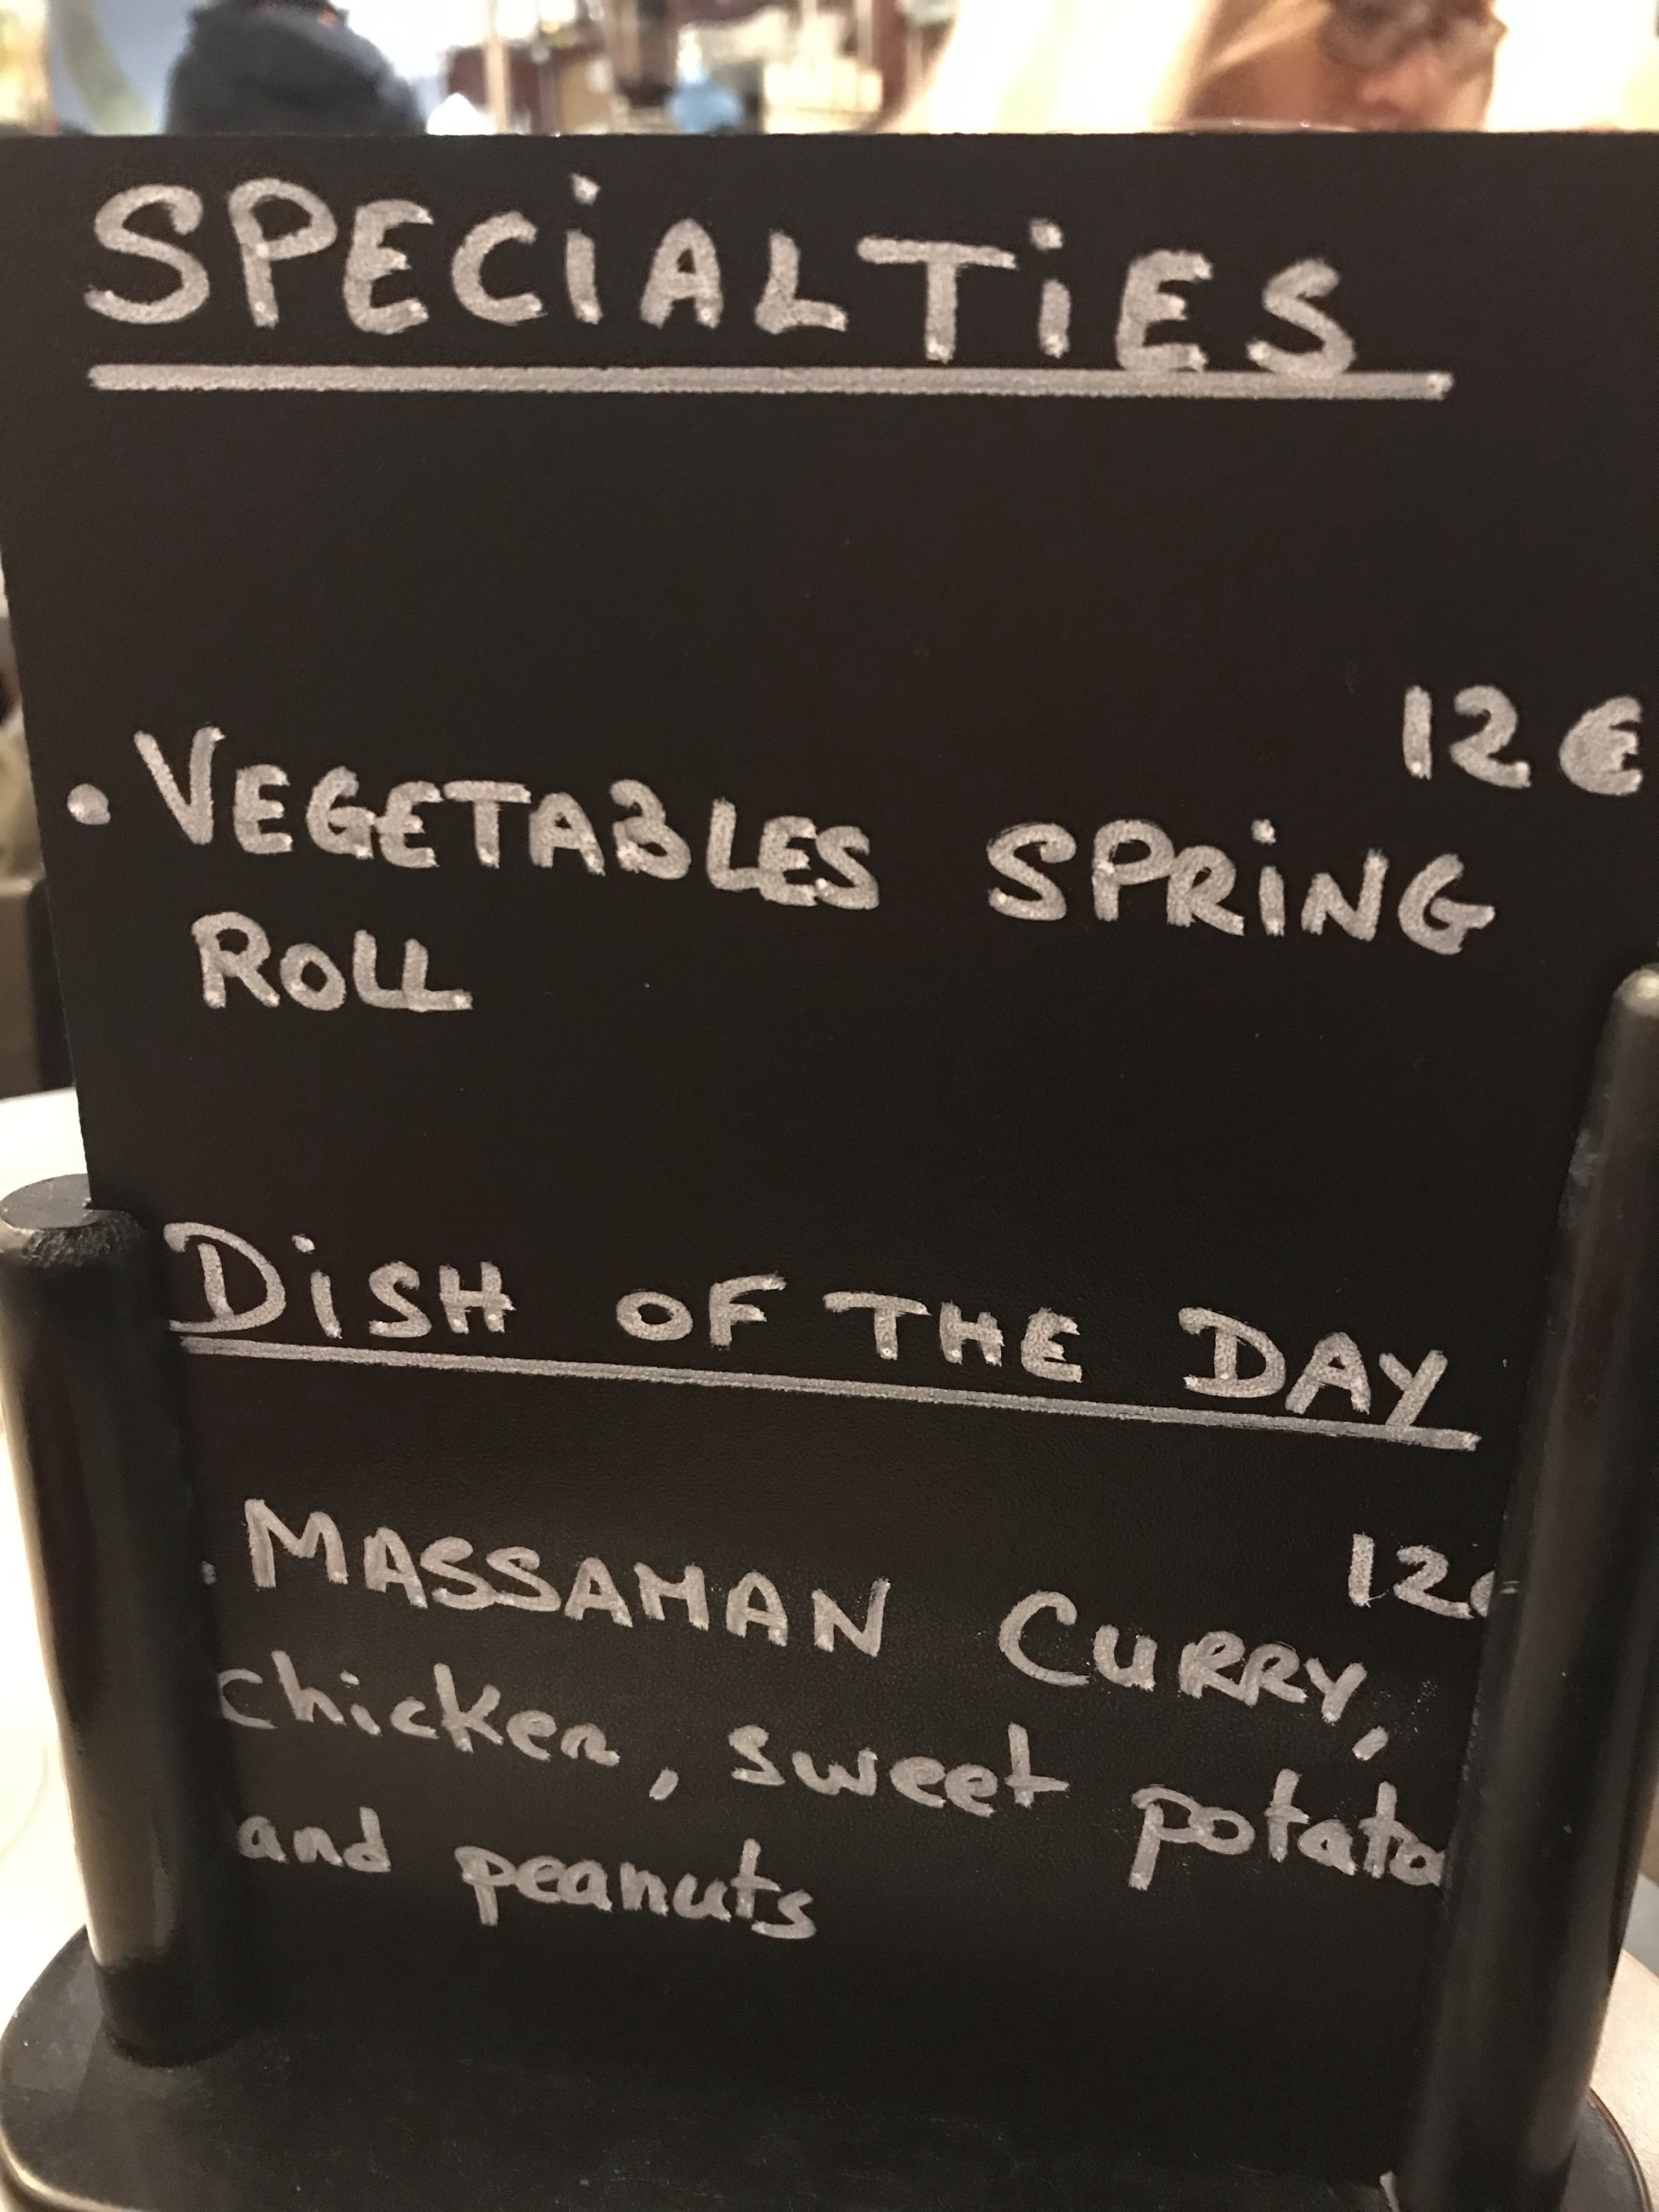 SPECiALTiES
12€
• VEGETABLES SPRiNG
ROLL
DiSH OF THE DAY
12€
MASSAMAN CURRY,
chicken, sweet potato
and peanuts